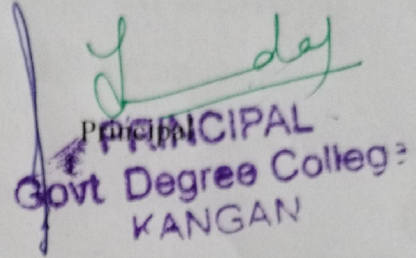 Principal
PRINCIPAL
Govt Degree College
KANGAN